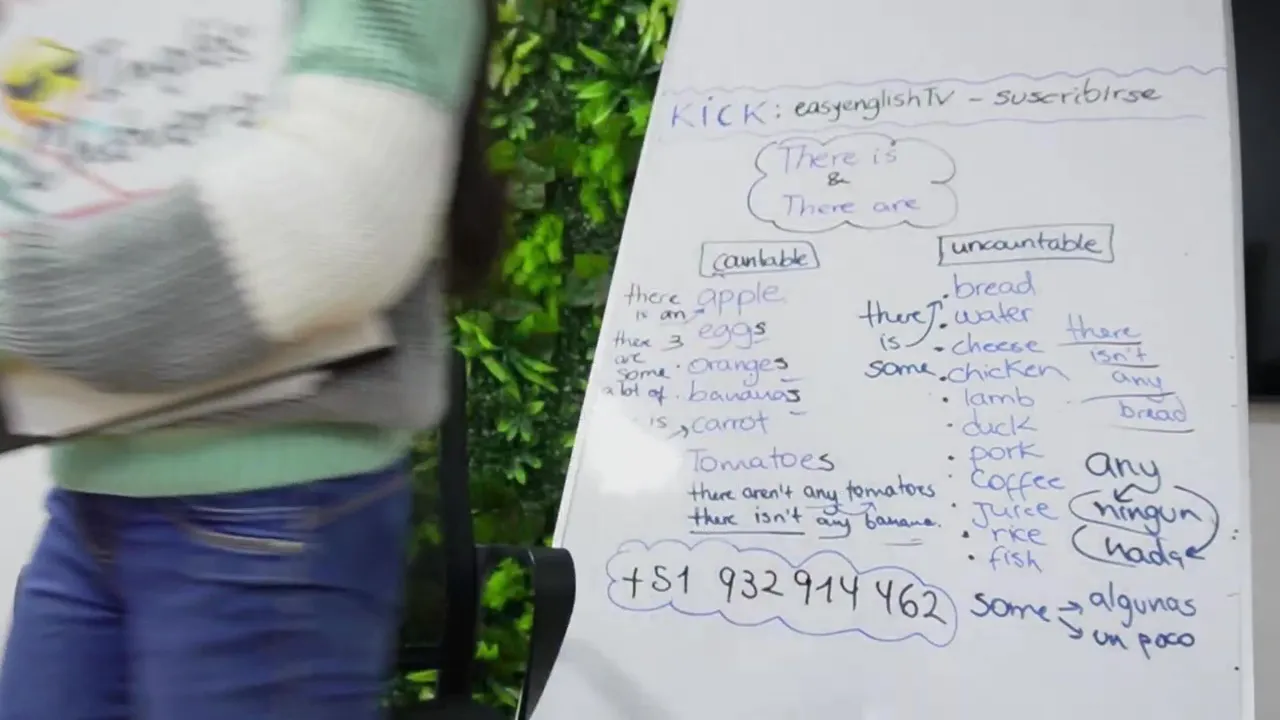 KICK: easyenglishTV - suscribirse
There is
&
There are
countable
there is an apple
there are 3 eggs
some oranges
a lot of bananas
is carrot
Tomatoes
there aren't any tomatoes
there isn't any banana.
uncountable
there is some
bread
water
cheese
chicken
lamb
duck
pork
coffee
Juice
rice
fish
there
isn't
any
bread
any
ningun
nada
+51 932 914 462
some → algunas
→ un poco